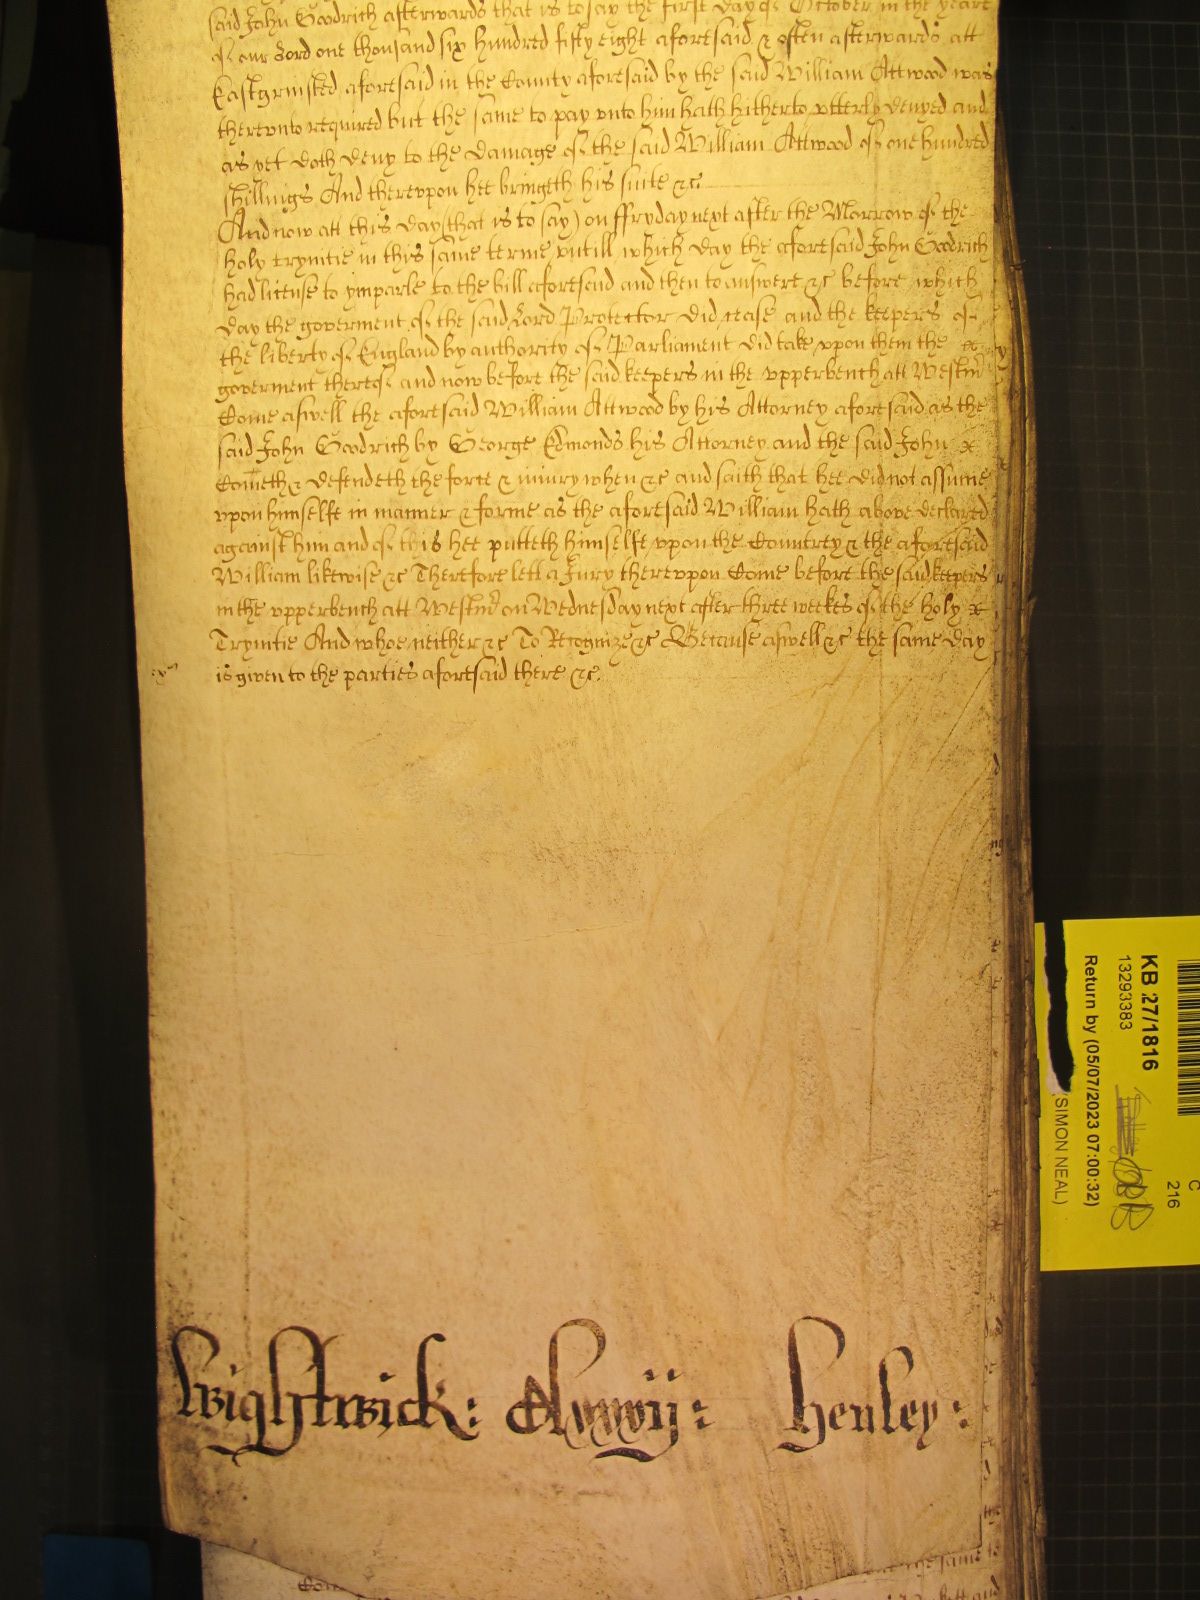 said John Goodrich afterwards that is to say the first day of October in the yeare
of our Lord one thousand six hundred fifty eight aforesaid & often afterwards att
Eastgrinsted aforesaid in the County aforesaid by the said William Attwood was
thereunto required but the same to pay unto him hath hitherto utterly denyed and
as yet doth deny to the damage of the said William Attwood of one hundred
shillings And thereupon hee bringeth his suite &c
And now att this day (that is to say) on ffryday next after the Morrow of the
holy trynitie in this same terme untill which day the aforesaid John Goodrich
had license to ymparle to the bill aforesaid and then to answere &c before which
day the goverment of the said Lord Protector did cease and the keepers of
the liberty of England by authority of Parliament did take upon them the
goverment thereof and now before the said keepers in the upperbench att Westm
Come aswell the aforesaid William Attwood by his Attorney aforesaid as the
said John Goodrich by George Edmonds his Attorney and the said John
Cometh & defendeth the force & iniury when &c and saith that hee did not assume
upon himselfe in manner & forme as the aforesaid William hath above declared
against him and of this hee putteth himselfe upon the Countrey & the aforesaid
William likewise &c Therefore lett a Jury thereupon Come before the said keepers
in the upperbench att Westm on Wednesday next after three weekes of the holy
Trynitie And whoe neither &c To Recognize &c Because aswell &c the same day
is given to the parties aforesaid there &c.
Wightwick: Henley:
KB 27/1816
13293383
Return by (05/07/2023 07:00:32)
(SIMON NEAL)
C
216
the same